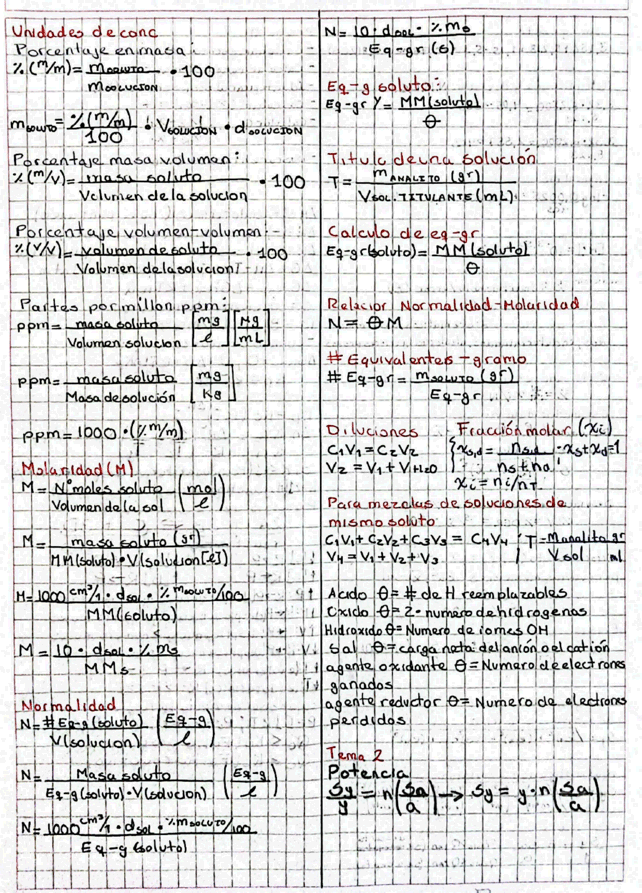 Unidades de conc
Porcentaje en masa:
%(m/m) = m SOLUTO / m SOLUCION • 100
m SOLUTO = %(m/m) / 100 • V SOLUCION • d SOLUCION
Porcentaje masa volumen:
%(m/v) = masa soluto / Volumen de la solucion • 100
Porcentaje volumen-volumen:
%(v/v) = volumen de soluto / Volumen de la solucion • 100
Partes por millon ppm:
ppm = masa soluto / Volumen solucion [mg / l] [µg / mL]
ppm = masa soluto / Masa de solución [mg / Kg]
ppm = 1000 • (% m/m)
Molaridad (M)
M = N° moles soluto / Volumen de la sol (mol / l)
M = masa soluto (gr) / MM (soluto) • V(solucion [l])
M = 1000 cm³/1 • d sol • % m SOLUTO/100 / MM (soluto)
M = 10 • d sol • % ms / MM s
Normalidad
N = # Eq-g (soluto) / V(solucion) (Eq-g / l)
N = Masa soluto / Eq-g (soluto) • V(solucion) (Eq-g / l)
N = 1000 cm³/1 • d sol • % m SOLUTO/100 / Eq-g (soluto)
N = 10 • d sol • % ms / Eq-gr (s)
Eq-g soluto:
Eq-gr Y = MM (soluto) / θ
Titulo de una solución
T = m ANALITO (gr) / V SOL. TITULANTE (mL)
Calculo de eq-gr
Eq-gr (soluto) = MM (soluto) / θ
Relacior Normalidad-Molaridad
N = θ M
# Equivalentes - gramo
# Eq-gr = m SOLUTO (gr) / Eq-gr
Diluciones Fracción molar (xi)
C1V1 = C2V2 { x s,d = n s,d / ns + nd • xs + xd = 1
V2 = V1 + V H2O xi = ni/nT
Para mezclas de soluciones de
mismo soluto
C1V1 + C2V2 + C3V3 = C4V4 T = m analito gr / V sol ml
V4 = V1 + V2 + V3
Acido θ = # de H reemplazables
Oxido θ = 2 • numero de hidrogenos
Hidroxido θ = Numero de iomes OH
Sal θ = carga neta del anión o el catión
agente oxidante θ = Numero de electrones
ganados
agente reductor θ = Numero de electrones
perdidos
Tema 2
Potencia
Sy / y = n (Sa / a) → Sy = y • n (Sa / a)